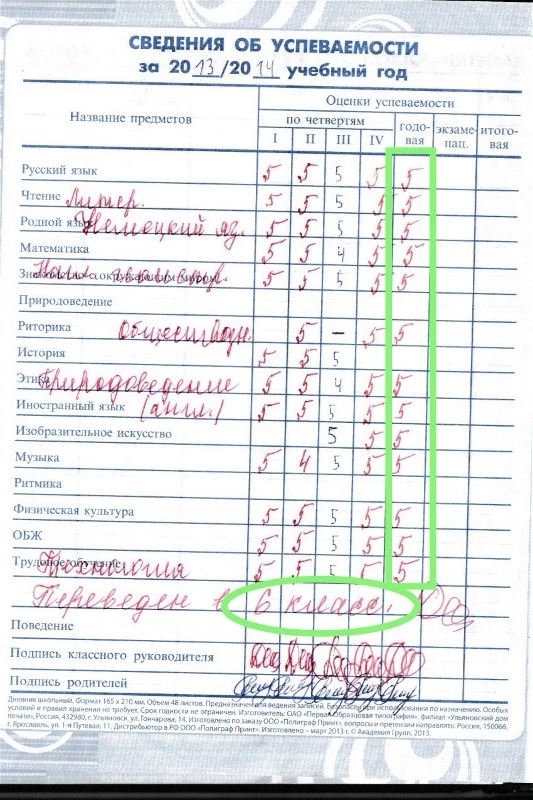 СВЕДЕНИЯ ОБ УСПЕВАЕМОСТИ
за 2013/2014 учебный год
Название предметов
Оценки успеваемости
по четвертям
годо-вая
экзаме-нац.
итого-вая
I II III IV
Русский язык 5 5 5 5 5
Чтение Литер. 5 5 5 5 5
Родной язык Немецкий яз. 5 5 5 5 5
Математика 5 5 4 5 5
Знакомство с окружающим миром 5 5 5 5 5
Природоведение
Риторика Обществозн. 5 – 5 5
История 5 5 5
Этика Природоведение 5 5 4 5 5
Иностранный язык (англ.) 5 5 5 5 5
Изобразительное искусство 5 5 5
Музыка 5 4 5 5 5
Ритмика
Физическая культура 5 5 5 5 5
ОБЖ 5 5 5 5 5
Трудовое обучение Технология 5 5 5 5 5
Переведен в 6 класс.
Поведение
Подпись классного руководителя
Подпись родителей
Дневник школьный. Формат 165 х 210 мм. Объем 48 листов. Предназначен для ведения записей. Безопасен при использовании по назначению. Особых
условий и правил хранения не требует. Срок годности не ограничен. Изготовитель: ОАО «Первая Образцовая типография», филиал «Ульяновский дом
печати», Россия, 432980, г. Ульяновск, ул. Гончарова, 14. Изготовлено по заказу ООО «Полиграф Принт», вопросы и претензии направлять: Россия, 150066,
г. Ярославль, ул. 1-я Путевая, 11. Дистрибьютор в РФ ООО «Полиграф Принт». Изготовлено – март 2013 г. © Академия Групп, 2013.